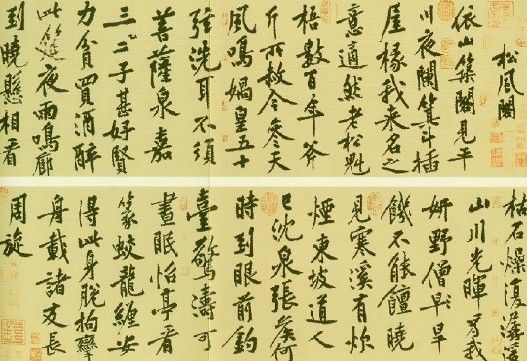 松風閣
依山築閣見平
川夜闌箕斗插
屋椽我來名之
意適然老松魁
梧數百年斧
斤所赦今參天
風鳴媧皇五十
弦洗耳不須
菩薩泉嘉
三二子甚好賢
力貧買酒醉
此筵夜雨鳴廊
到曉懸相看
枯石燥復潺湲
山川光暉為我
妍野僧早旱
飢不能饘曉
見寒溪有炊
煙東坡道人
已沈泉張侯何
時到眼前釣
臺驚濤可
晝眠怡亭看
篆蛟龍纏安
得此身脫拘攣
舟載諸友長
周旋